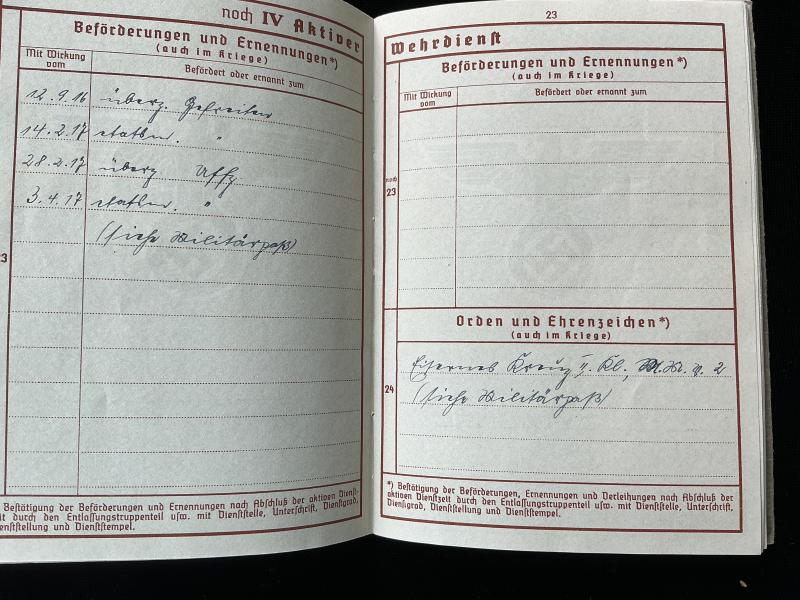 noch IV Aktiver
Beförderungen und Ernennungen*)
(auch im Kriege)
Mit Wirkung vom
Befördert oder ernannt zum
12.9.16 überz. Gefreiten
14.2.17 etatsm. "
28.2.17 überz. Uffz
3.4.17 etatsm. "
(siehe Militärpaß)
3
Bestätigung der Beförderungen und Ernennungen nach Abschluß der aktiven Dienst-
it durch den Entlassungstruppenteil usw. mit Dienststelle, Unterschrift, Dienstgrad,
enststellung und Dienststempel.
23
Wehrdienst
Beförderungen und Ernennungen*)
(auch im Kriege)
Mit Wirkung vom
Befördert oder ernannt zum
noch
23
Orden und Ehrenzeichen*)
(auch im Kriege)
24
Eisernes Kreuz II. Kl., M.V. 2
(siehe Militärpaß)
*) Bestätigung der Beförderungen, Ernennungen und Verleihungen nach Abschluß der
aktiven Dienstzeit durch den Entlassungstruppenteil usw. mit Dienststelle, Unterschrift,
Dienstgrad, Dienststellung und Dienststempel.